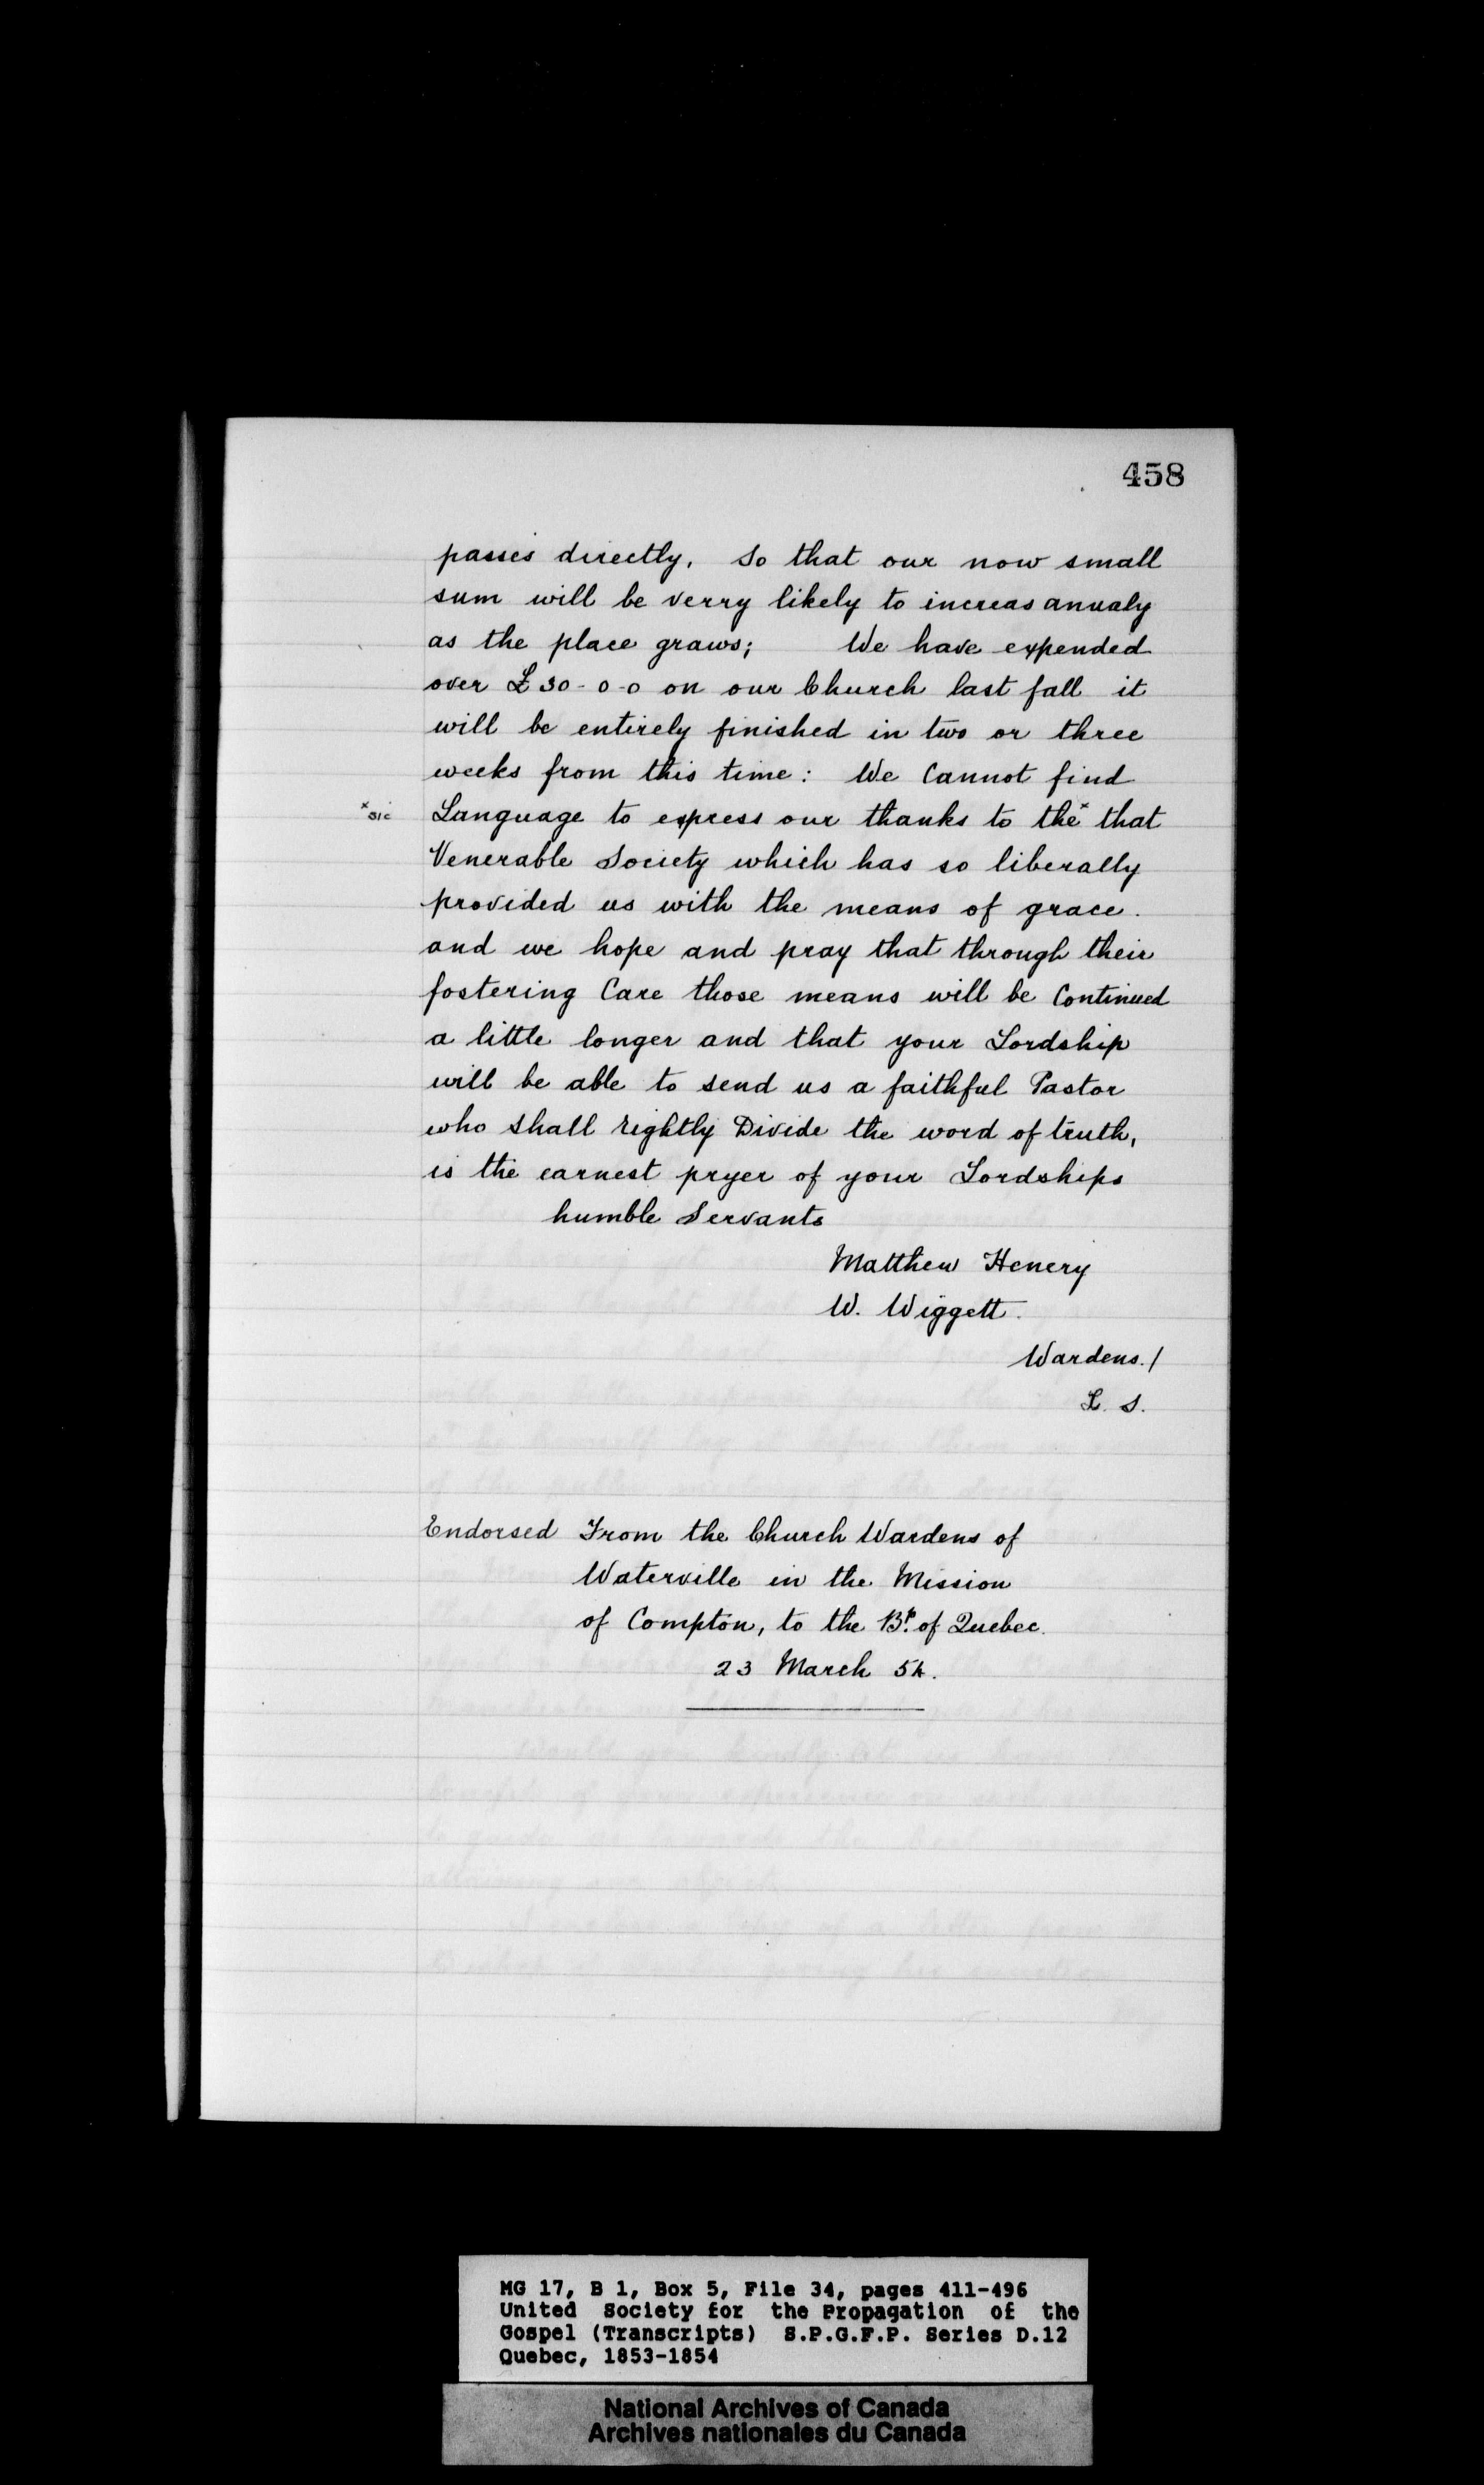 458
passes directly. So that our now small
sum will be verry likely to increas anualy
as the place graws; We have expended
over £30-0-0 on our Church last fall it
will be entirely finished in two or three
weeks from this time: We Cannot find
x sic Language to express our thanks to the x that
Venerable Society which has so liberally
provided us with the means of grace.
and we hope and pray that through their
fostering Care those means will be Continued
a little longer and that your Lordship
will be able to send us a faithful Pastor
who shall rightly Divide the word of truth,
is the earnest pryer of your Lordships
humble Servants
Matthew Henery
W. Wiggett.
Wardens./
L. S.
Endorsed From the Church Wardens of
Waterville in the Mission
of Compton, to the Bp. of Quebec.
23 March 54.
MG 17, B 1, Box 5, File 34, pages 411-496
United Society for the Propagation of the
Gospel (Transcripts) S.P.G.F.P. Series D.12
Quebec, 1853-1854
National Archives of Canada
Archives nationales du Canada